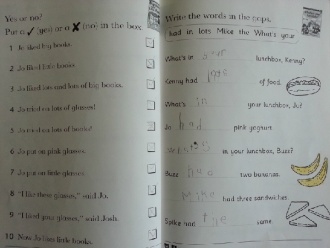 Yes or no?
Put a ✓ (yes) or a ✗ (no) in the box.
1 Jo liked big books.
2 Jo liked little books.
3 Jo liked lots and lots of big books.
4 Jo tried on lots of glasses!
5 Jo tried on lots of
6 Jo put on pink glasses.
7 Jo put on little glasses.
8 "I like these glasses," said Jo.
9 "I like your glasses," said Josh.
10 Now Jo likes little books.
Write the words in the gaps.
had in lots Mike the What's your
What's in your lunchbox, Kenny?
Kenny had lots of food.
What's in your lunchbox, Jo?
Jo had pink yoghurt.
in your lunchbox, Buzz?
Buzz two bananas.
Mike had three sandwiches.
Spike had the same.